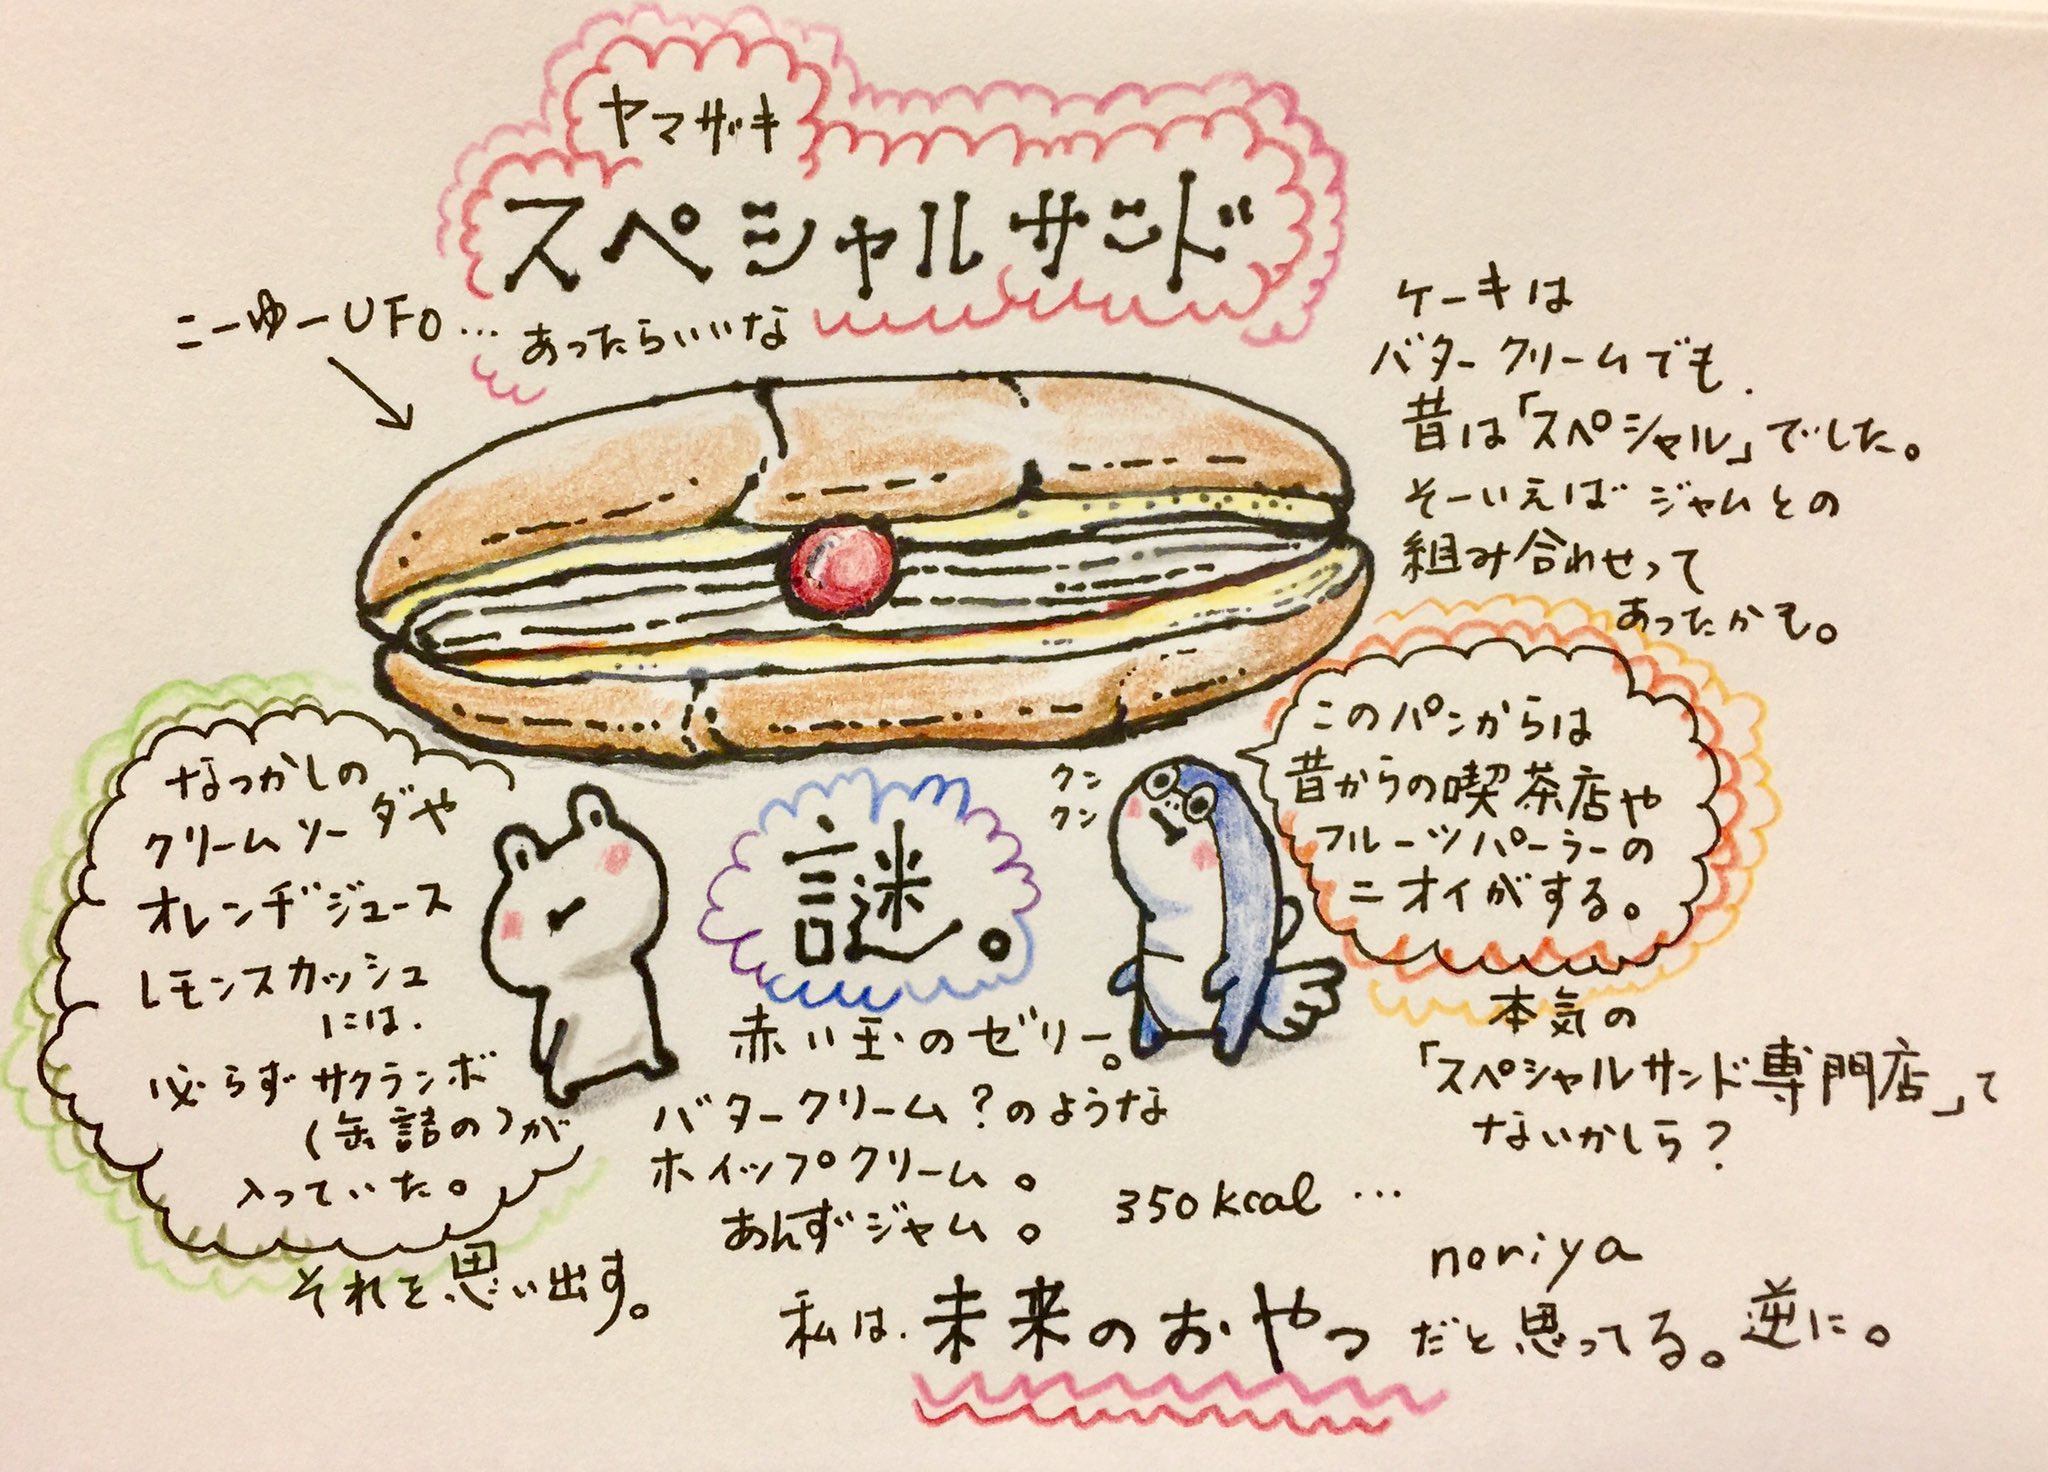 ヤマザキ
スペシャルサンド
こーゆーUFO…あったらいいな
ケーキは
バタークリームでも、
昔は「スペシャル」でした。
そーいえばジャムとの
組み合わせって
あったかも。
なつかしの
クリームソーダや
オレンヂジュース
レモンスカッシュ
には、
必らずサクランボ
(缶詰の)が
入っていた。
それを思い出す。
謎。
赤い玉のゼリー。
バタークリーム?のような
ホイップクリーム。
あんずジャム。
クン
クン
このパンからは
昔からの喫茶店や
フルーツパーラーの
ニオイがする。
本気の
「スペシャルサンド専門店」て
ないかしら?
350kcal…
noriya
私は、未来のおやつだと思ってる。逆に。